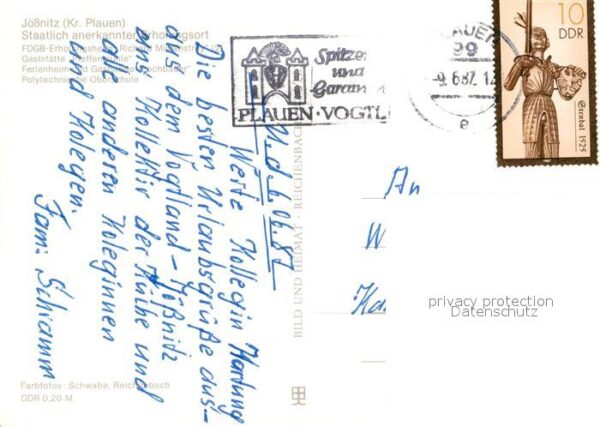 Jößnitz (Kr. Plauen)
Staatlich anerkannter Erholungsort
FDGB-Erholungsheim
Gaststätte
Ferienheim und
Polytechnische Oberschule
Farbfotos: Schwabe, Reichenbach
DDR 0,20 M
BILD UND HEIMAT · REICHENBACH
Spitzen
und
Gardinen
PLAUEN · VOGTL
PLAUEN
99
-9.6.87.12
e
10
DDR
Stendal 1525
d. 6.06.87
Werte Kollegin Hartung
Die besten Urlaubsgrüße aus
aus dem Vogland - Jößnitz
ans Kollektiv der Küche und
alle anderen Koleginnen
und Kolegen.
Fam. Schramm
An
W
privacy protection
Datenschutz